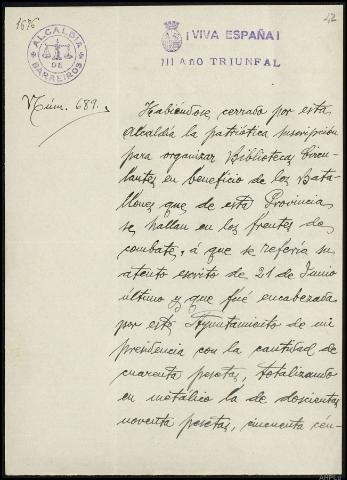 1676
42
ALCALDIA DE BARREIROS
¡VIVA ESPAÑA!
III AÑO TRIUNFAL
Núm. 689.
Habiéndose cerrado por esta
Alcaldía la patriótica suscripción
para organizar Bibliotecas Circu-
lantes en beneficio de los Bata-
llones que de esta Provincia
se hallan en los frentes de
combate, á que se refería su
atento escrito de 21 de Junio
último y que fué encabezada
por este Ayuntamiento de mi
presidencia con la cantidad de
cuarenta pesetas, totalizando
en metálico la de doscientas
noventa pesetas, cincuenta cén-